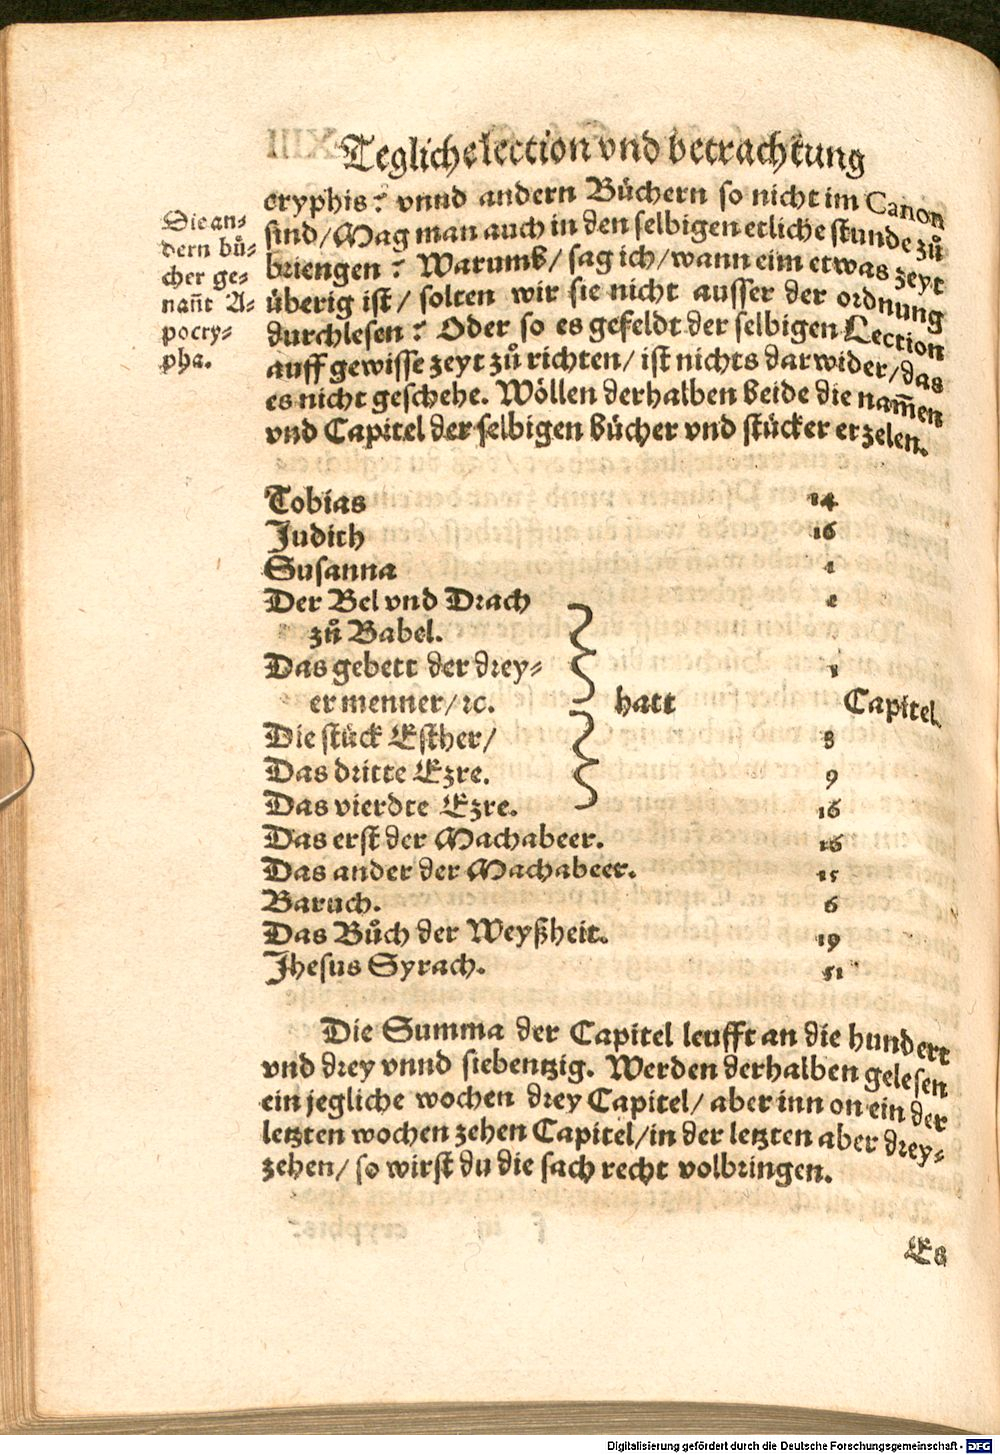 Teglich election vnd betrachtung
cryphis? vnnd andern Bůchern so nicht im Canon
sind/Mag man auch in den selbigen etliche stunde zů
briengen? Warumb/sag ich/wann eim etwas zeyt
überig ist/ solten wir sie nicht ausser der ordnung
durchlesen? Oder so es gefeldt der selbigen Lection
auff gewisse zeyt zů richten/ ist nichts darwider/das
es nicht geschehe. Wöllen derhalben beide die nam̄en
vnd Capitel der selbigen bücher vnd stücker erzelen.
Die an-
dern bů-
cher ge-
nañt A-
pocry-
pha.
Tobias 14
Judith 16
Susanna 1
Der Bel vnd Drach 1
zů Babel.
Das gebett der drey- 1
er menner/ꝛc. hatt Capitel.
Die stück Esther/ 8
Das dritte Ezre. 9
Das vierdte Ezre. 16
Das erst der Machabeer. 16
Das ander der Machabeer. 15
Baruch. 6
Das Bůch der Weyßheit. 19
Jhesus Syrach. 51
Die Summa der Capitel leufft an die hundert
vnd drey vnnd siebentzig. Werden derhalben gelesen
ein jegliche wochen drey Capitel/ aber inn on ein der
letzten wochen zehen Capitel/in der letzten aber drey-
zehen/ so wirst du die sach recht volbringen.
Es
Digitalisierung gefördert durch die Deutsche Forschungsgemeinschaft - DFG